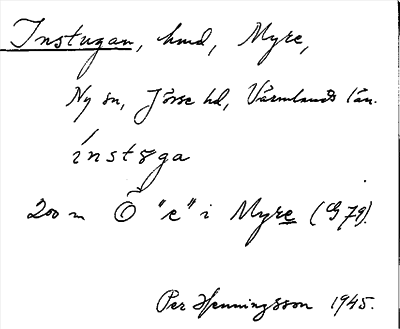 Instugan, hmd, Myre,
Ny sn, Jösse hd, Värmlands län.
ínstəga
200 m Ö "e" i Myre (G 79).
Per Henningsson 1945.